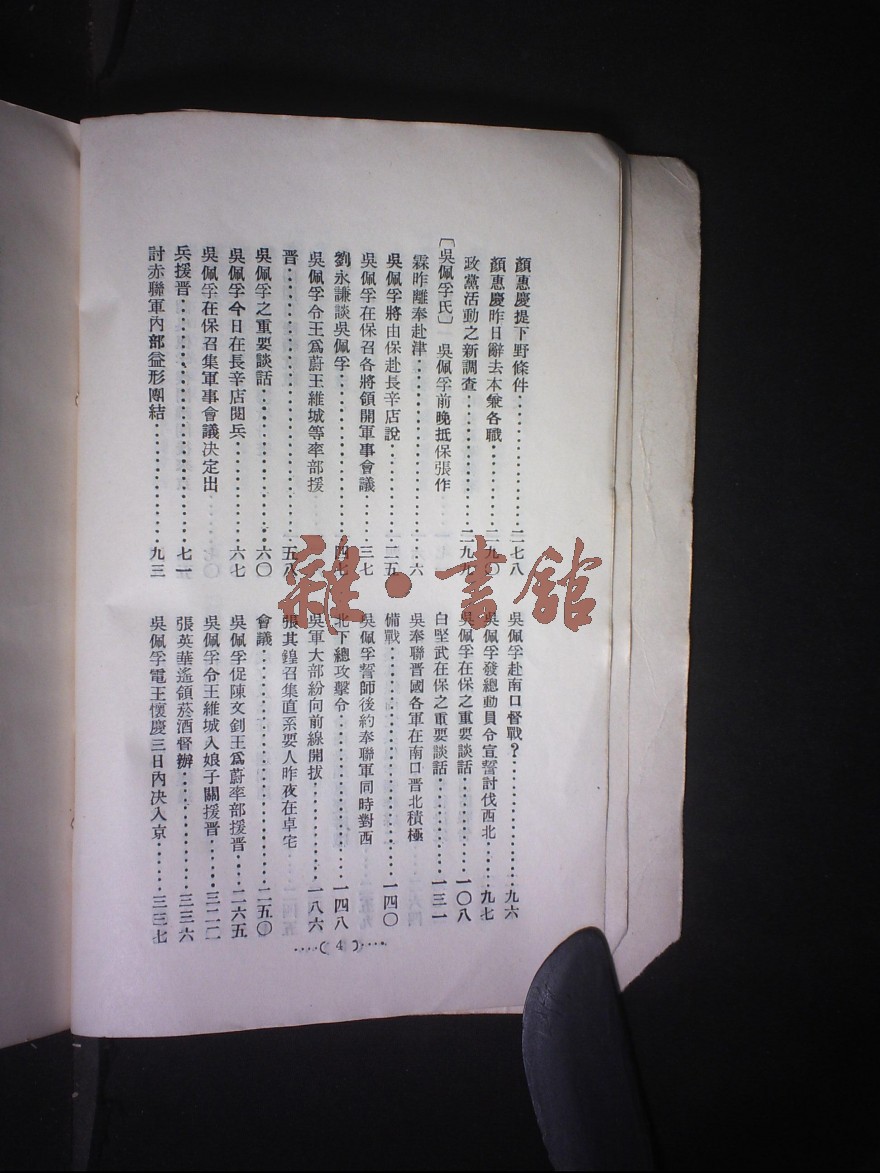 顏惠慶提下野條件………………二七八
顏惠慶昨日辭去本兼各職…………二九〇
政黨活動之新調查………………二九九
〔吳佩孚氏〕 吳佩孚前晚抵保張作
霖昨離奉赴津………………一六
吳佩孚將由保赴長辛店說…………二五
吳佩孚在保召各將領開軍事會議……三七
劉永謙談吳佩孚………………四七
吳佩孚令王爲蔚王維城等率部援
晋………………五八
吳佩孚之重要談話………………六〇
吳佩孚今日在長辛店閱兵…………六七
吳佩孚在保召集軍事會議決定出
兵援晋………………七一
討赤聯軍內部益形團結……………九三
吳佩孚赴南口督戰?………………九六
吳佩孚發總動員令宣誓討伐西北……九七
吳佩孚在保之重要談話……………一〇八
白堅武在保之重要談話……………一三一
吳奉聯晋國各軍在南口晋北積極
備戰………………一四〇
吳佩孚誓師後約奉聯軍同時對西
北下總攻擊令………………一四八
吳軍大部紛向前線開拔……………一八六
張其鍠召集直系要人昨夜在卓宅
會議………………二五〇
吳佩孚促陳文釗王爲蔚率部援晋……二六五
吳佩孚令王維城入娘子關援晋………三二二
張英華遙領菸酒督辦……………三三六
吳佩孚電王懷慶三日內決入京………三三七
····( 4 )····
雜·書館